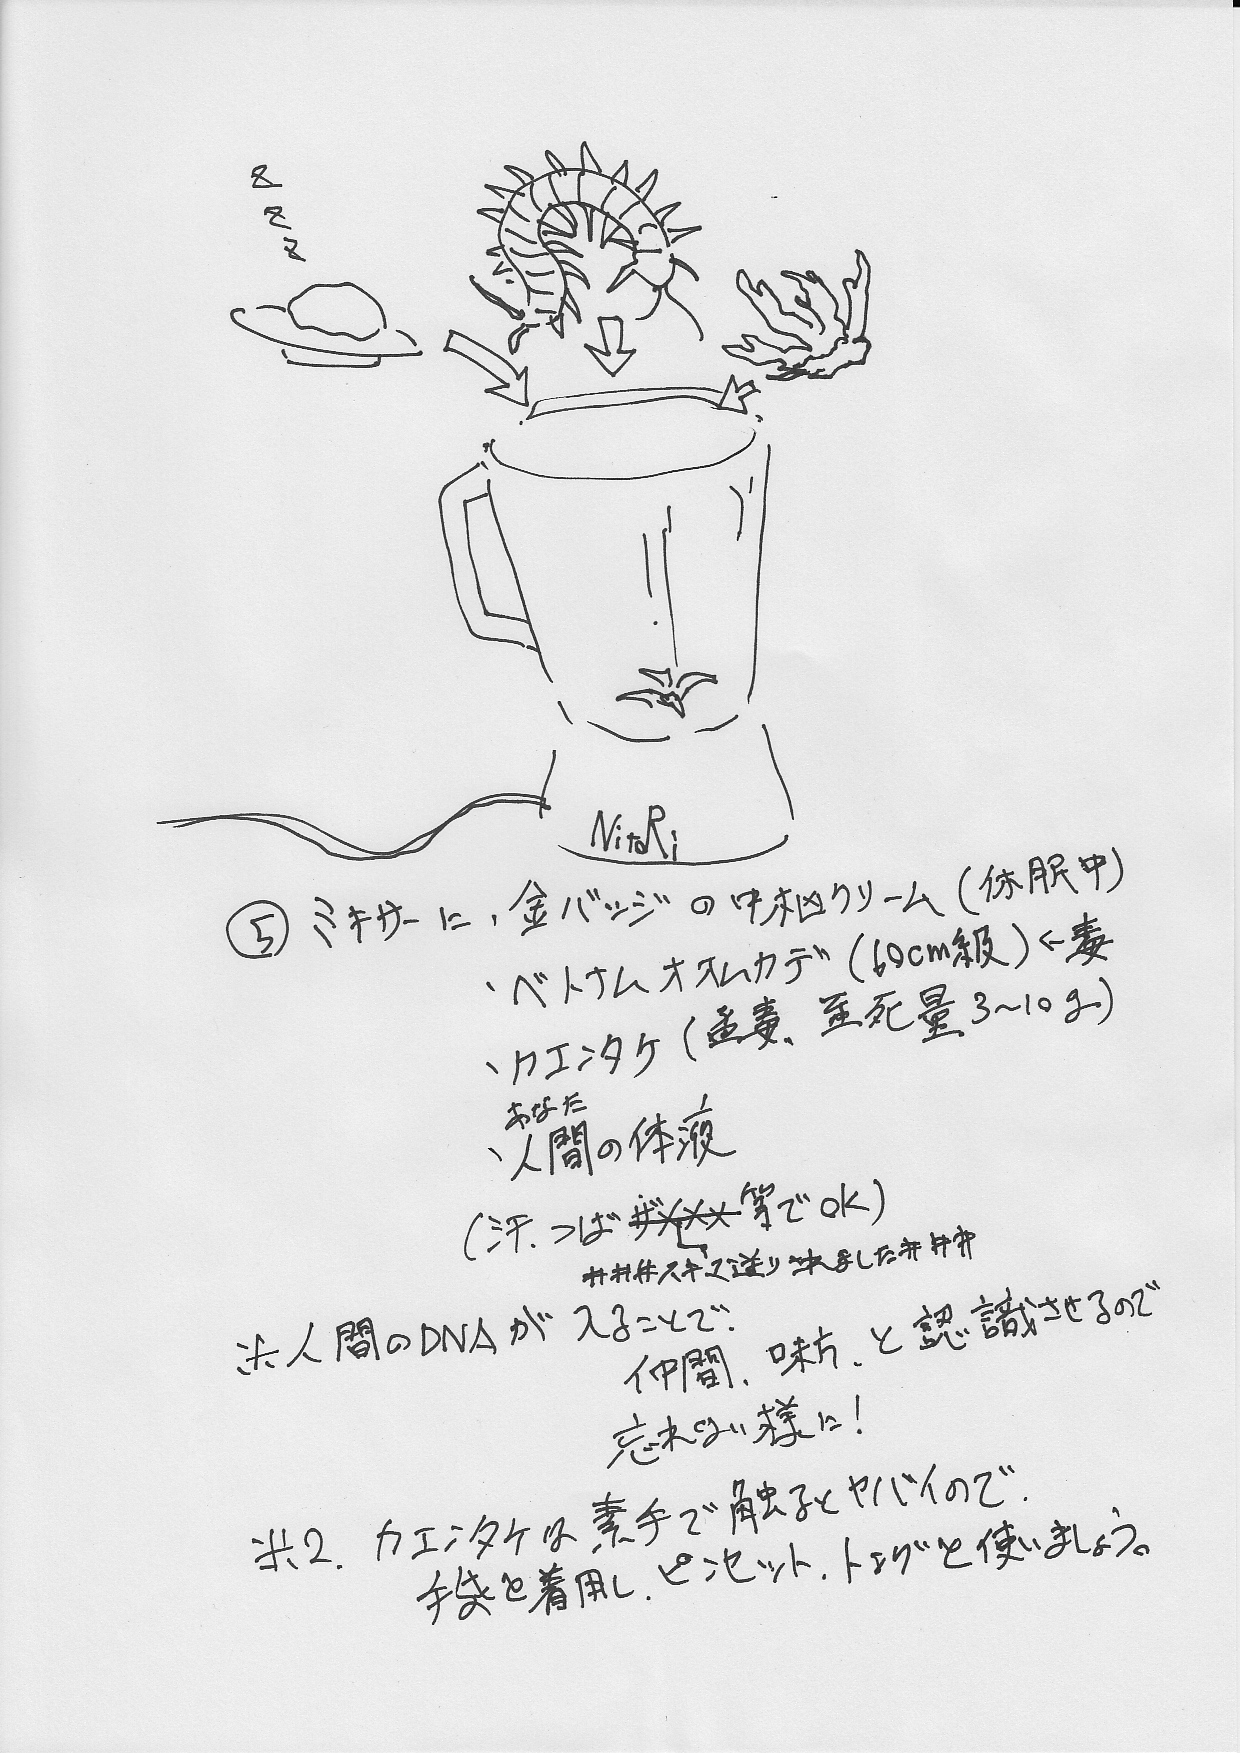 z
z
z
NitoRi
⑤ ミキサーに、金バッジの中枢クリーム(休眠中)
、ベトナムオオムカデ(60cm級)←毒
、カエンタケ(猛毒、致死量3~10g)
あなた
、人間の体液
(汗、つば 等でOK)
###スキマ送りされました###
※人間のDNAが入ることで、
仲間、味方、と認識させるので
忘れない様に!
※2. カエンタケは素手で触るとヤバイので、
手袋を着用し、ピンセット、トングを使いましょう。